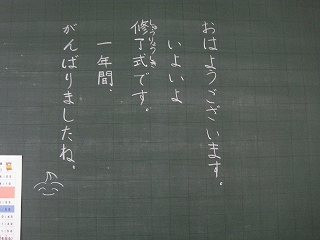 おはようございます。
いよいよ
修了式です。
一年間、
がんばりましたね。